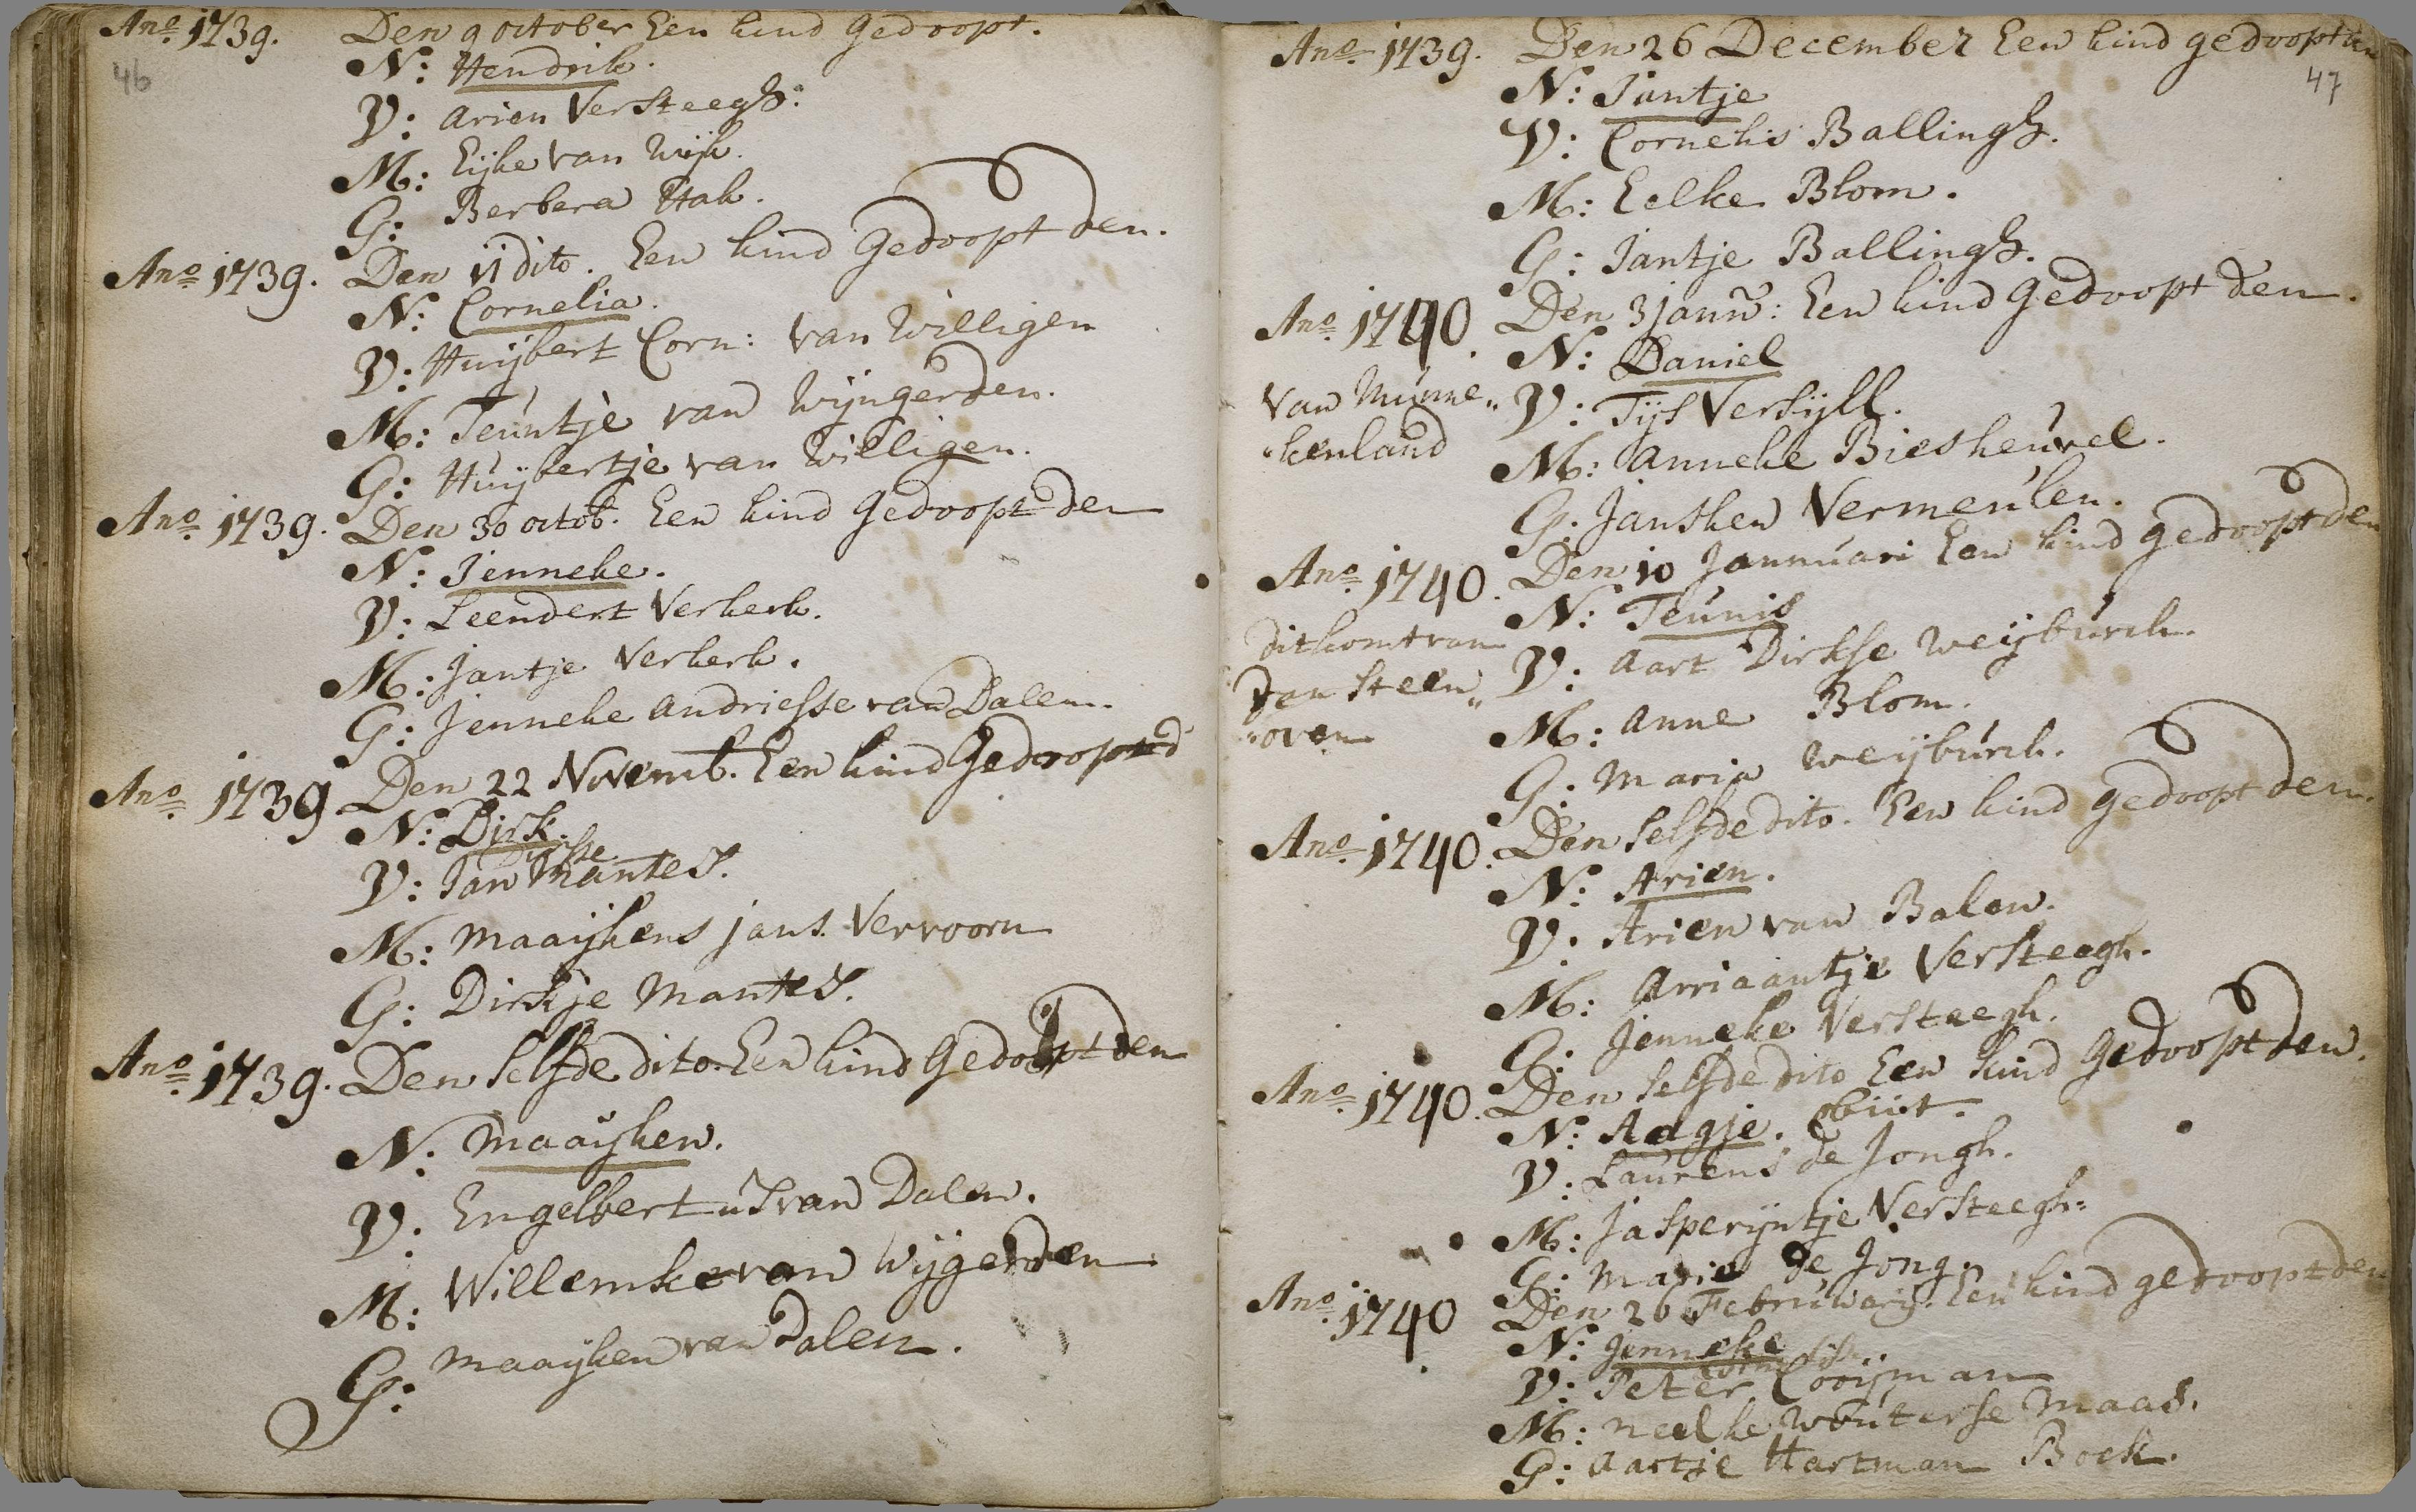 Ano. 1739. Den 9 october Een kind Gedoopt.
46
N: Hendrik.
V: Arien Versteegh.
M: Eijke van Wijk.
G: Berbera Hak.
Ano 1739. Den 11 dito. Een kind Gedoopt den.
N: Cornelia.
V: Huijbert Corn: van Willigen
M: Teuntje van Wijngerden.
G: Huijbertje van Willigen.
Ano 1739. Den 30 octob. Een kind Gedoopt den
N: Jenneke.
V: Leendert Verkerk.
M: Jantje Verkerk.
G: Jenneke andriesse van Dalen.
Ano 1739 Den 22 Novemb. Een kind Gedoopt d
N: Dirk.
Dirkse
V: Jan Mantes.
M: Maaijkens jans. Vervoorn
G: Dirkje Mantes.
Ano 1739. Den selfde dito. Een kind Gedoopt den
N: Maaijken.
V: Engelbert van Dalen.
M: Willemke van Wijgerden
G: Maaijken van Dalen.
Ano 1739. Den 26 December Een kind gedoopt
47
N: Jantje
V: Cornelis Ballingh.
M: Eelke Blom.
G: Jantje Ballingh.
Ano 1740. Den 3 janu: Een kind Gedoopt den.
N: Daniel
Van Munne„ V: Tijs Versijll.
„kenland M: Anneke Biesheuvel.
G: Jansken Vermeulen.
Ano 1740. Den 10 Jannuari Een kind gedoopt den
N: Teunis
dit komt van V: Aart Dirkse Weijburch.
Jan Steen„ M: Anne Blom.
„oven G: Maria Weijburch.
Ano 1740. Den selfde dito. Een kind gedoopt den.
N: Arien.
V: Arien van Balen.
M: Arriaantje Versteegh.
G: Jenneke Versteegh.
Ano 1740. Den selfde dito Een kind Gedoopt den.
N: Aagje. Obiit.
V: Laurens de Jongh.
M: Jasperijntje Versteegh.
G: Maria de Jong.
Ano 1740 Den 26 Februwarij. Een kind gedoopt den
N: Jenneke
V: Peter Cooijman
M: Neelke Wouterse Maas.
G: Aartje Hartman Bock.